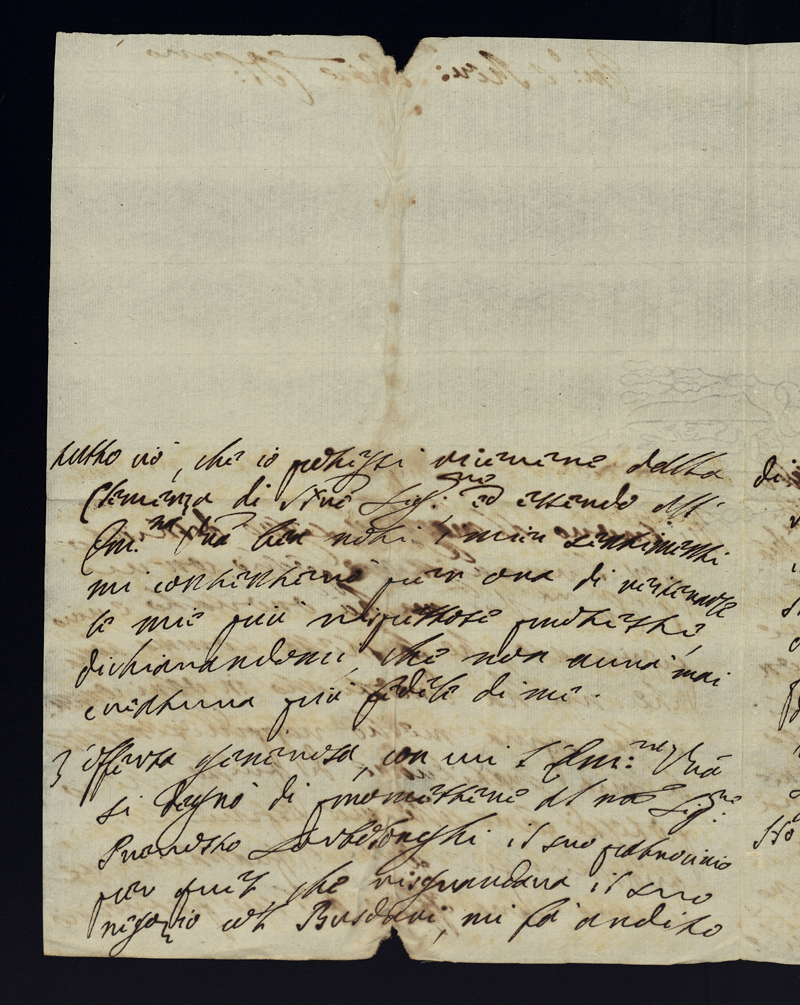 tutto ciò, che io potessi ricevere dalla
Clemenza di Nrõ Sig.re ed essendo all'
Em.za Vrã ben noti i miei sentimenti
mi contenterò per ora di reiterarle
le mie più rispettose proteste,
dichiarandomi, che non avrà mai
creatura più fedele di me.
L'offerta generosa, con cui l'Em.za Vrã
si degnò di promettere al nrõ Sig.re
il suo patrocinio
per quel che risguardava il suo
negozio col Busdari, mi fà ardito